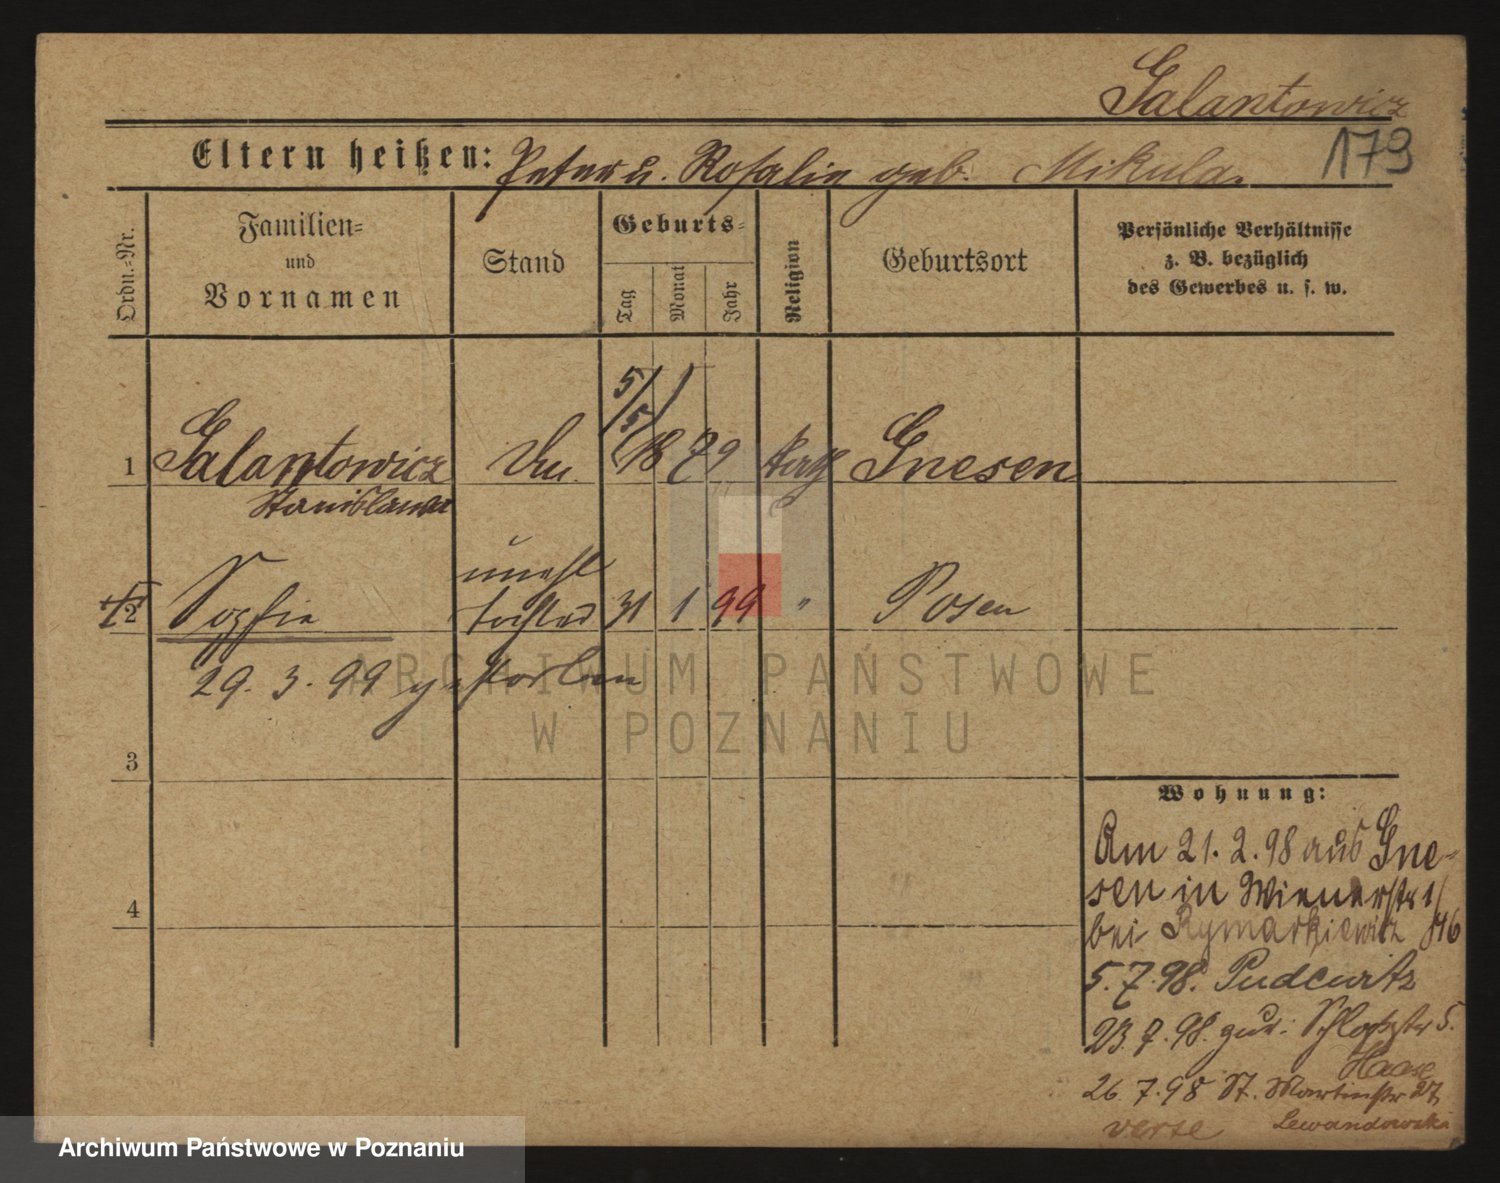 Galantowicz
179
Eltern heißen: Peter u. Rosalie geb. Mikula.
Ordn.-Nr.
Familien-
und
Vornamen
Stand
Geburts-
Tag
Monat
Jahr
Religion
Geburtsort
Persönliche Verhältnisse
z. B. bezüglich
des Gewerbes u. s. w.
5/5
1 Galantowicz 18 79 kath Gnesen
Stanislawa
unehl
2 Sophie Tochter 31 1 99 " Posen
29. 3. 99 gestorben
ARCHIWUM PAŃSTWOWE
W POZNANIU
3
4
Wohnung:
Am 21. 2. 98 aus Gne-
sen in Wienerstr 1/
bei Rymarkiewicz 46
5. 7. 98. Pudewitz
23. 7. 98. zur. Schloßstr 5.
Haase
26. 7. 98 St. Martinstr 27,
Lewandowska
verte
Archiwum Państwowe w Poznaniu